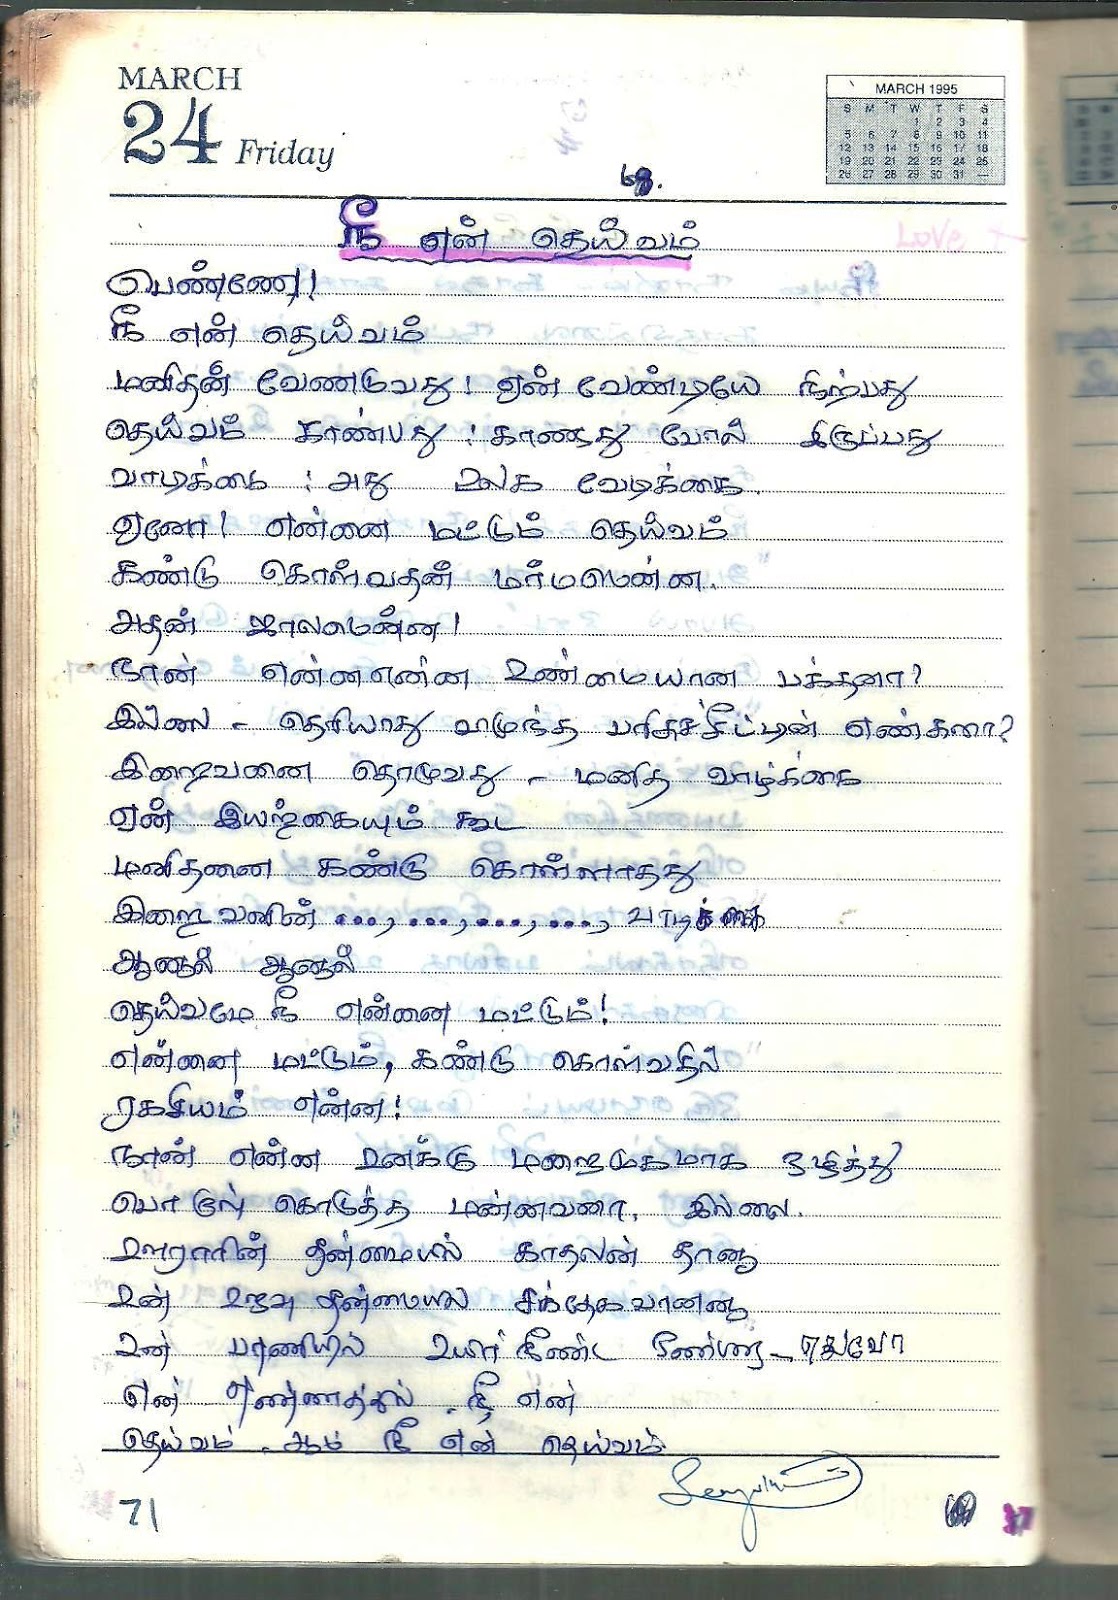 MARCH
24 Friday
MARCH 1995
S M T W T F S
1 2 3 4
5 6 7 8 9 10 11
12 13 14 15 16 17 18
19 20 21 22 23 24 25
26 27 28 29 30 31 —
நீ என் தெய்வம்
Love
பெண்ணே!
நீ என் தெய்வம்
மனிதன் வேண்டுவது! ஏன் வேண்டியே நிற்பது
தெய்வம் காண்பது! காணாது போல் இருப்பது
வாடிக்கை! அது உலக வேடிக்கை.
ஏனோ! என்னை மட்டும் தெய்வம்
கண்டு கொள்வதன் மர்மமென்ன.
அதன் ஜாலமென்ன!
நான் என்னஎன்ன உண்மையான பக்தனா?
இல்லை - தெரியாது வாழுந்த பரிதச்சீட்டின் எண்களா?
இறைவனை தொழுவது - மனித வாழ்க்கை
ஏன் இயற்கையும் கூட
மனிதனை கண்டு கொள்ளாதது
இறைவனின் ..., ..., ..., ..., வாடிக்கை
ஆனால் ஆனால்
தெய்வமே நீ என்னை மட்டும்!
என்னை மட்டும், கண்டு கொள்வதில்
ரகசியம் என்ன!
நான் என்ன உனக்கு மறைமுகமாக
பொருள் கொடுத்த மன்னவனா, இல்லை.
காதலன் தானு
உன் உறவு
உன் உயிர் நீண்ட - ஏதுவோ
என் எண்ணத்தில் . நீ என்
தெய்வம் . ஆம் நீ என் தெய்வம்
71
37